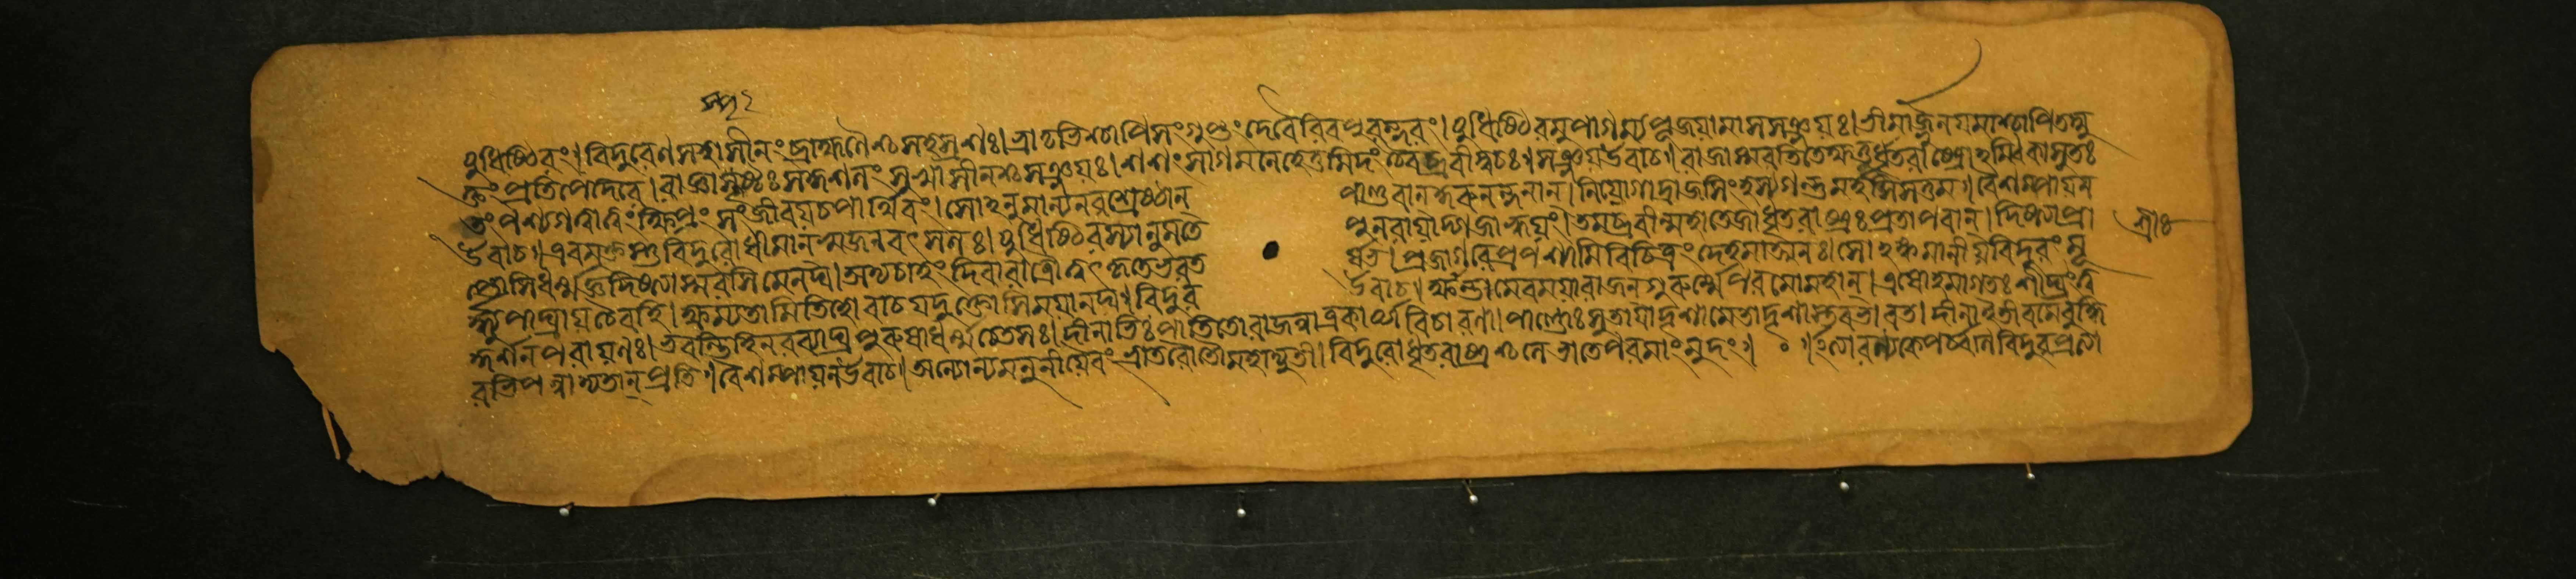 যুধিষ্ঠিরং।বিদুরেণসহাসীনংব্রাহ্মণৈশ্চসহস্রশঃ।ভ্রাতৃভিশ্চাপিসংগুপ্তংদেবৈরিবপুরন্দরং।যুধিষ্ঠিরমুপাগম্যপূজয়ামাসসঞ্জয়ঃ।ভীমার্জুনযমাশ্চাপিতদ্যু
ক্তংপ্রতিপেদিরে।রাজ্ঞাপৃষ্টঃসকুশলংসুখাসীনশ্চসঞ্জয়ঃ।শশংসাগমনেহেতুমিদংচৈবাব্রবীদ্বচঃ॥সঞ্জয়উবাচ॥রাজাস্মরতিতেক্ষত্তর্ধৃতরাষ্ট্রোঽম্বিকাসুতঃ
তংপশ্যগত্বাত্বংক্ষিপ্রংসংজীবয়চপার্থিবং।সোঽনুমান্যনরশ্রেষ্ঠান্ পাণ্ডবানকুরুনন্দনান্।নিয়োগাদ্রাজসিংহস্যগন্তুমর্হসিসত্তম॥বৈশম্পায়ন
উবাচ॥এবমুক্তস্তুবিদুরোধীমান্স্বজনবৎসলঃ।যুধিষ্ঠিরস্যানুমতে পুনরায়াদ্গজাহ্বয়ং।তমব্রবীন্মহাতেজাধৃতরাষ্ট্রঃপ্রতাপবান্।দিষ্ট্যাপ্রা শ্রীঃ
প্তোসিধর্মজ্ঞদিষ্ট্যাস্মরসিমেনঘ।অদ্যচাহংদিবারাত্রৌত্বৎকৃতেভরত র্ষভ।প্রজাগরেপ্রপশ্যামিবিচিত্রংদেহমাত্মনঃ।সোঽঙ্কমানীয়বিদুরংমূ
র্দ্ধ্ন্যুপাঘ্রায়চৈবহি।ক্ষম্যতামিতিহোবাচযদুক্তোসিময়ানঘ॥বিদুর উবাচ।ক্ষান্তমেবময়ারাজনগুরুর্ম্মেপরমোমহান্।এষোহমাগতঃশীঘ্রংত্ব
দ্দর্শনপরায়ণঃ।ভবন্তিহিনরব্যাঘ্রপুরুষাধর্ম্মচেতসঃ।দীনাভিঃপাতিতোরাজন্নাত্রকার্য্যাবিচারণা।পাণ্ডোঃসুতাযাদৃশামেতাদৃশাস্তবভারত।দীনাইতীবমেবুদ্ধি
রভিপন্নাদ্যতান্প্রতি॥বৈশম্পায়নউবাচ।অন্যোন্যমনুনীয়ৈবংভ্রাতরৌতৌমহাদ্যুতী।বিদুরোধৃতরাষ্ট্রশ্চলেভাতেপরমাংমুদং॥ ০ ॥ইত্যারণ্যকেপর্ব্বণিবিদুরপ্রত্যা